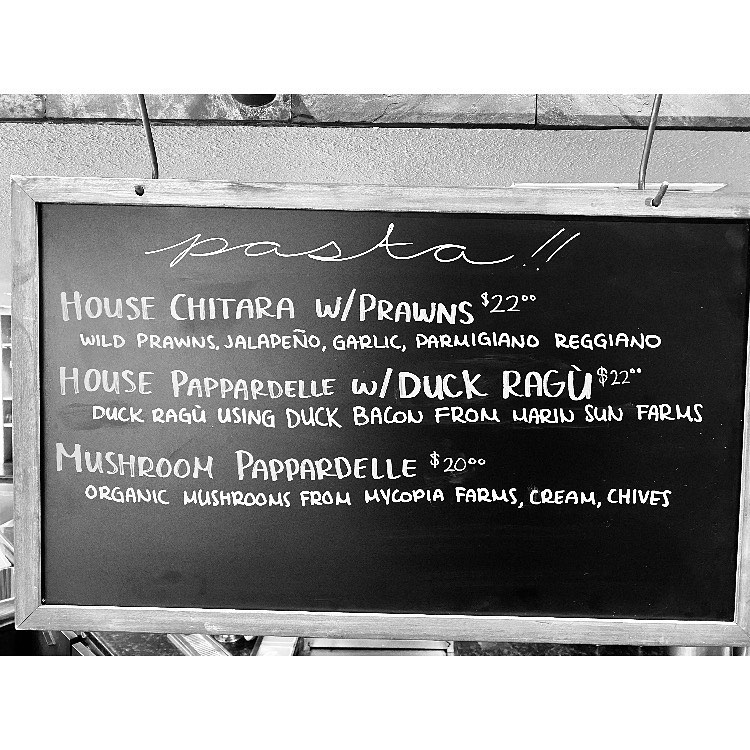 pasta!!
HOUSE CHITARA W/PRAWNS $22⁰⁰
WILD PRAWNS, JALAPEÑO, GARLIC, PARMIGIANO REGGIANO
HOUSE PAPPARDELLE W/DUCK RAGÙ $22⁰⁰
DUCK RAGÙ USING DUCK BACON FROM MARIN SUN FARMS
MUSHROOM PAPPARDELLE $20⁰⁰
ORGANIC MUSHROOMS FROM MYCOPIA FARMS, CREAM, CHIVES